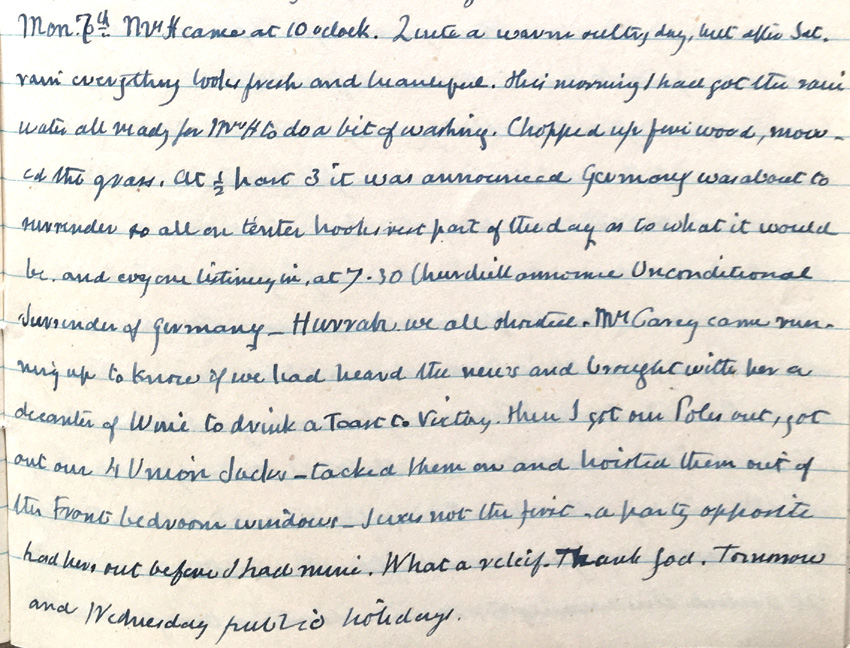 Mon. 7th Mrs H came at 10 oclock. Quite a warm sultry day, but after Sat.
rain everything looks fresh and beautiful. This morning I had got the rain
water all ready for Mrs H to do a bit of washing. Chopped up fire wood, mow-
ed the grass. At ½ past 3 it was announced Germany was about to
surrender so all on tenter hooks rest part of the day as to what it would
be. and evyone listining in, at 7.30 Churchill announce Unconditional
Surrender of Germany - Hurrah we all shouted. Mrs Carey came run-
ning up to know if we had heard the news and brought with her a
decanter of Wine to drink a Toast to Victory. Then I got our Poles out, got
out our 4 Union Jacks - tacked them on and hoisted them out of
the Front bedroom windows - I was not the first - a party opposite
had hers out before I had mine. What a releif. Thank God. Tomorrow
and Wednesday public holidays.